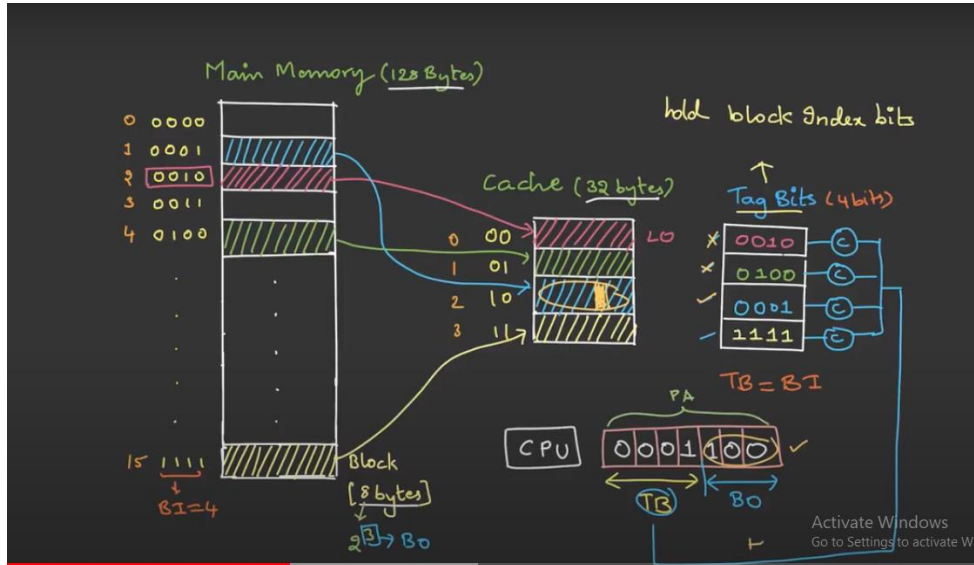 Main Memory (128 Bytes)
hold block Index bits
0 0000
1 0001
2 0010
3 0011
4 0100
15 1111
BI=4
Block
[8 bytes]
2 3 → BO
Cache (32 bytes)
0 00
1 01
2 10
3 11
LO
Tag Bits (4 bits)
0010 C
0100 C
0001 C
1111 C
TB = BI
PA
CPU
0001100
TB BO
Activate Windows
Go to Settings to activate W